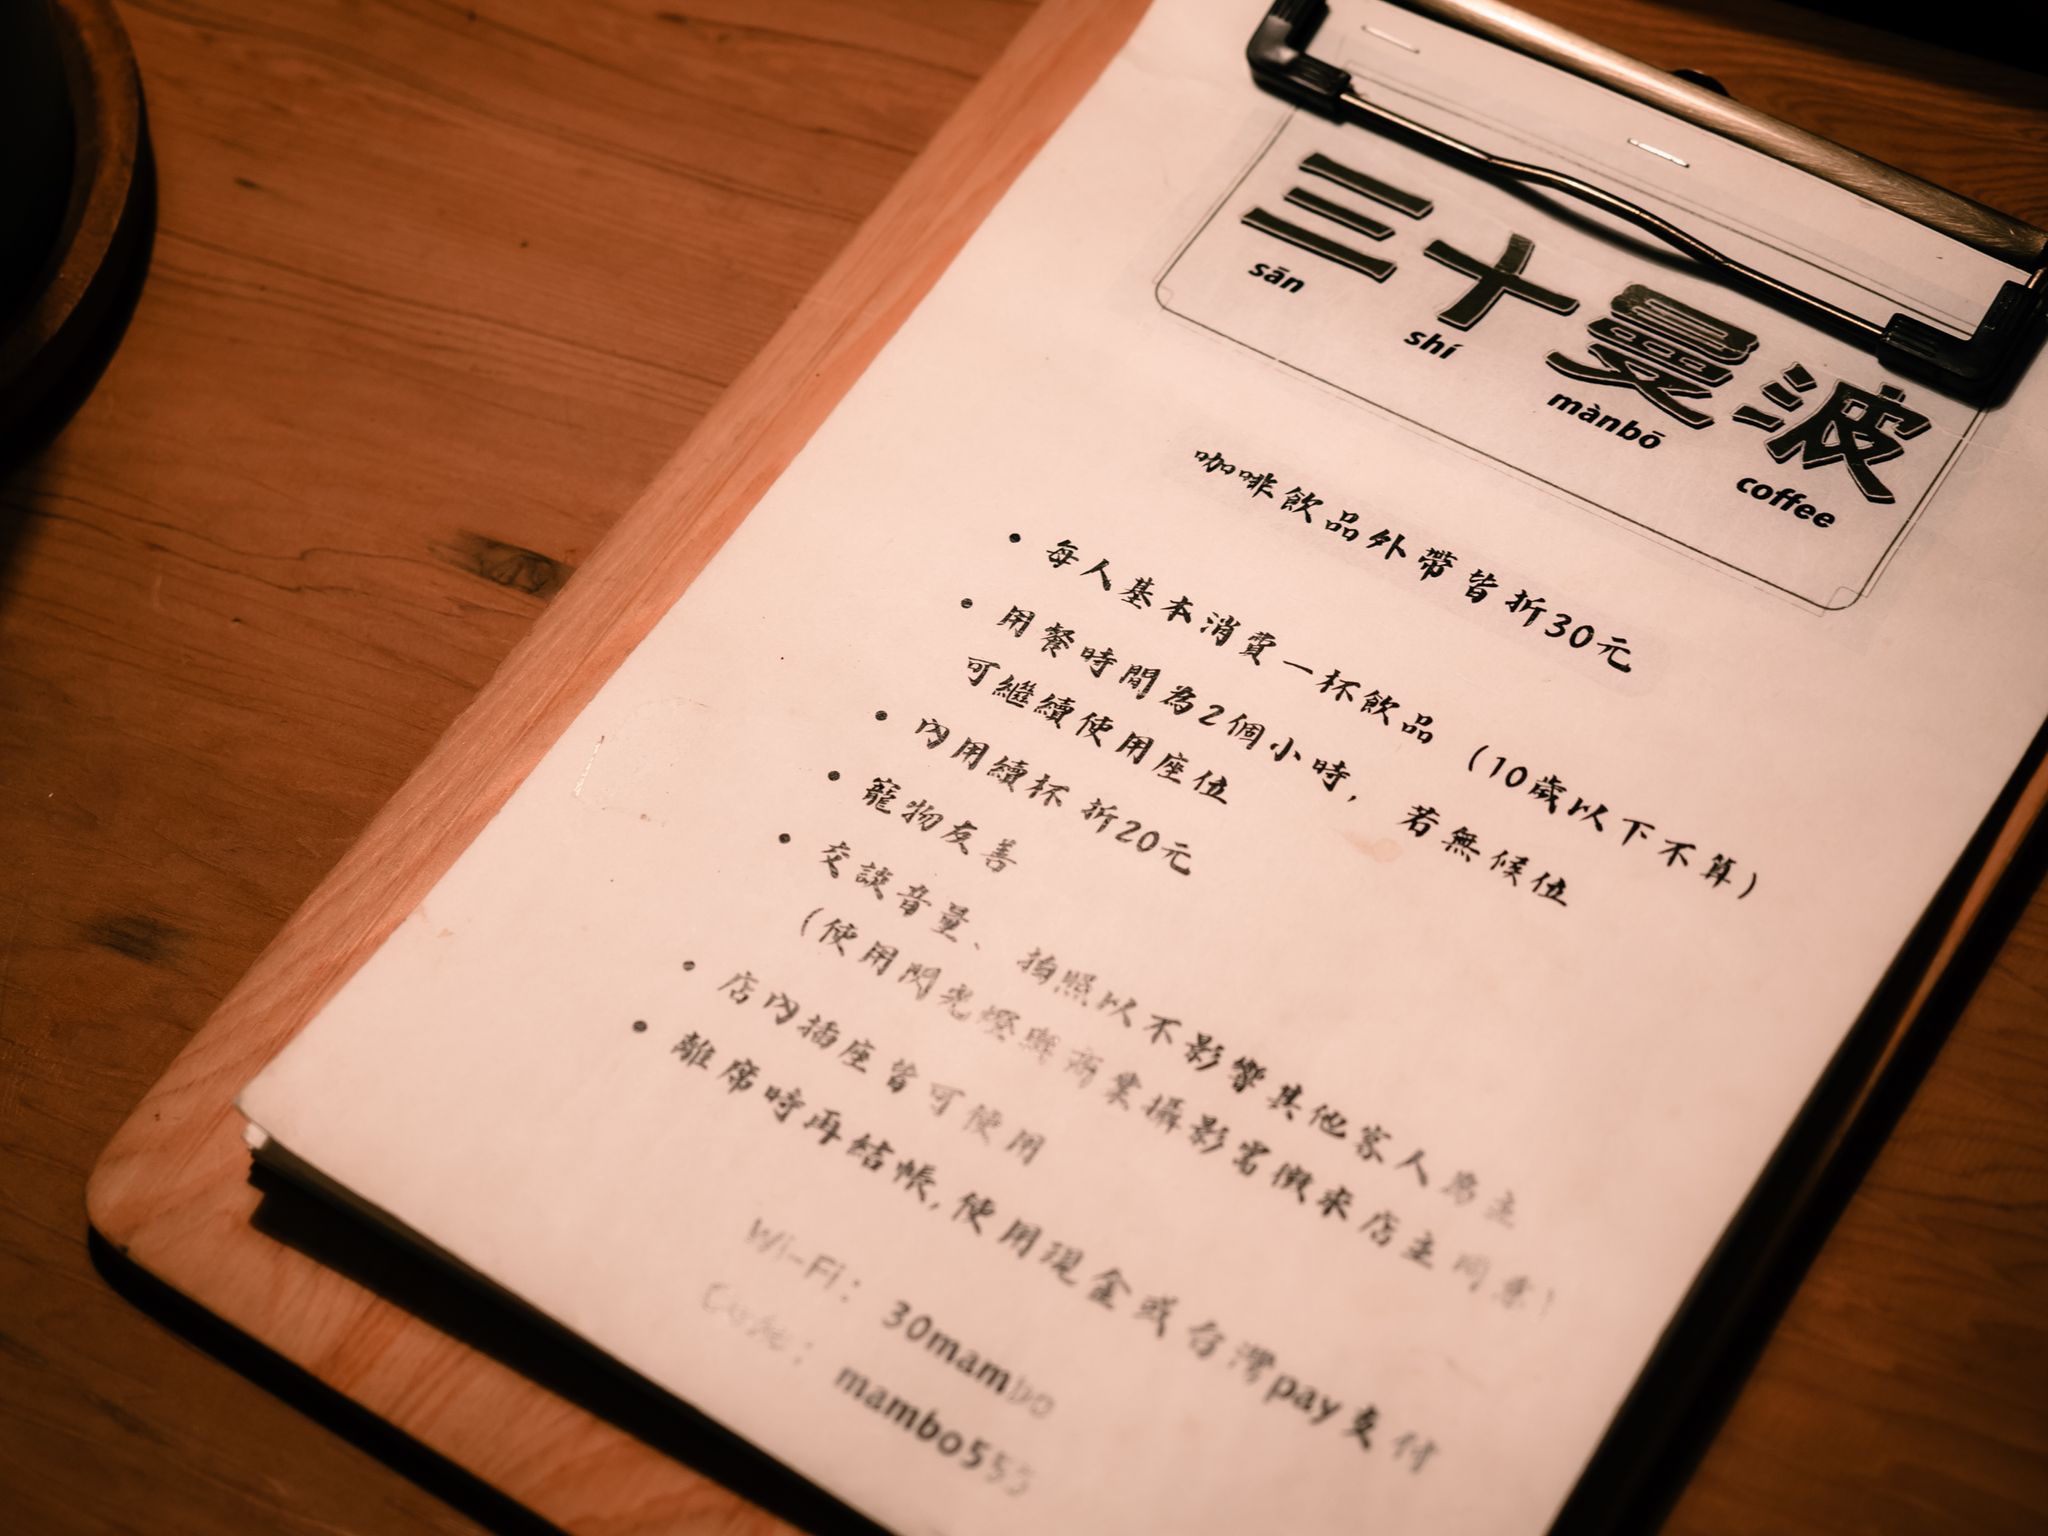 三十曼波
sān shí mànbō coffee
咖啡飲品外帶皆折30元
• 每人基本消費一杯飲品 (10歲以下不算)
• 用餐時間為2個小時, 若無候位
可繼續使用座位
• 內用續杯 折20元
• 寵物友善
• 交談音量、拍照以不影響其他客人為主
(使用閃光燈與商業攝影需徵求店主同意!
• 店內插座皆可使用
• 離席時再結帳,使用現金或台灣pay支付
Wi-Fi: 30mambo
Code: mambo555